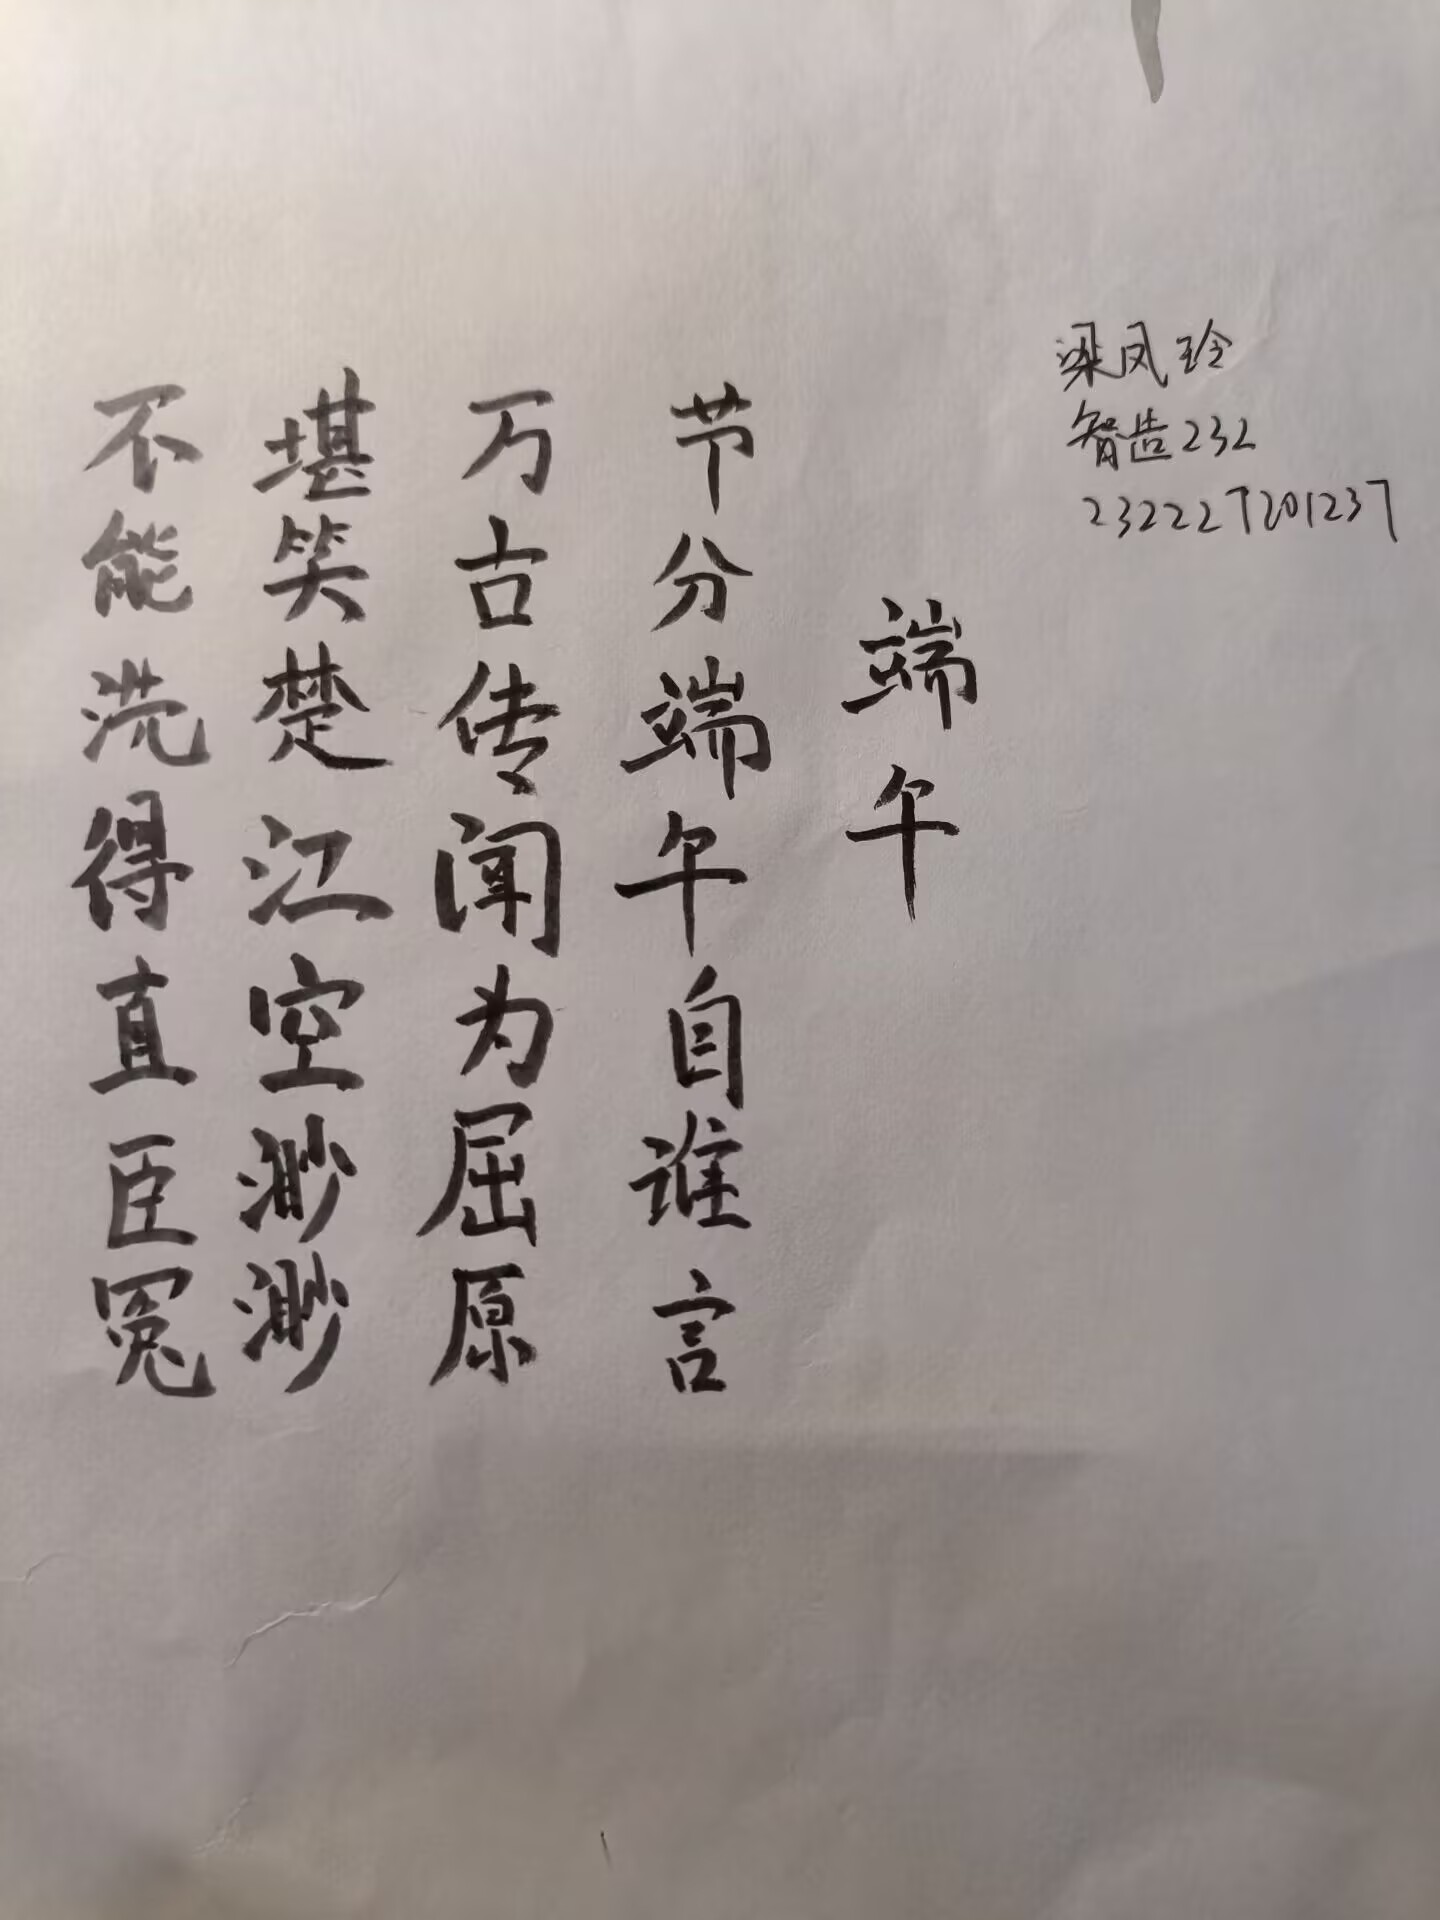 梁凤玲
智造232
232227201237
端午
节分端午自谁言
万古传闻为屈原
堪笑楚江空渺渺
不能洗得直臣冤